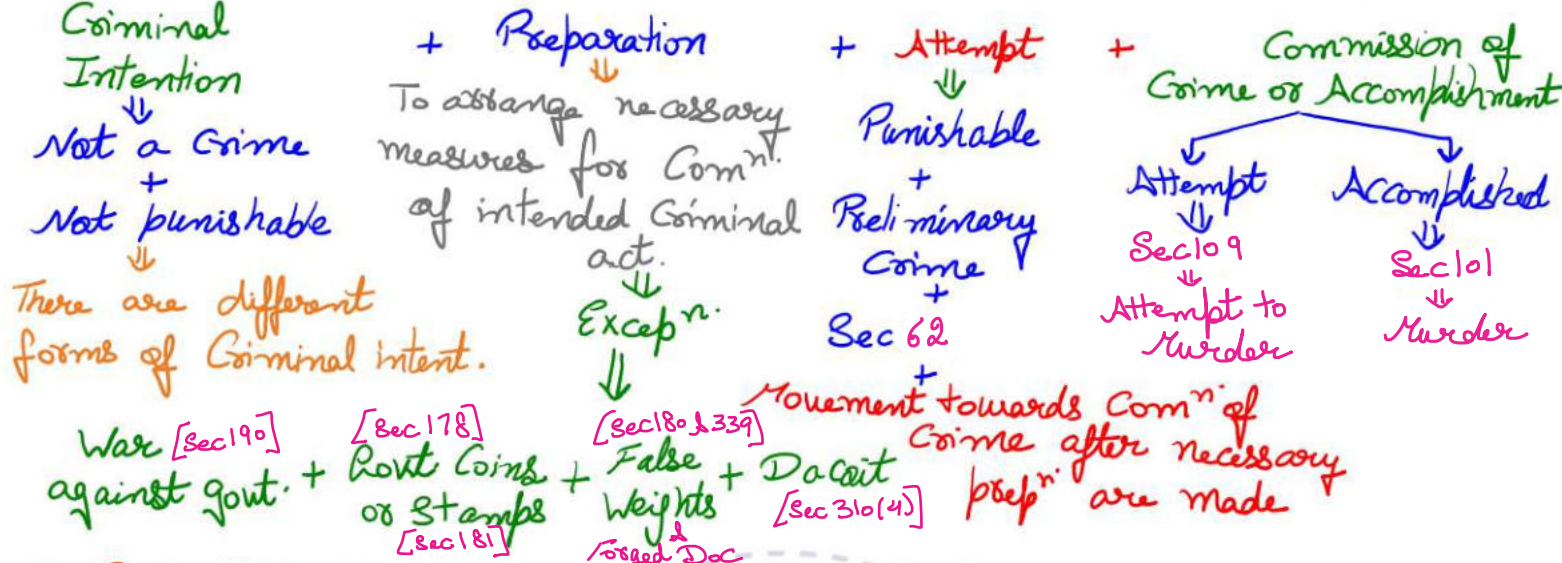 Criminal Intention
⇓
Not a Crime
+
Not punishable
⇓
There are different
forms of Criminal intent.
+ Preparation
⇓
To arrange necessary
measures for Comⁿ.
of intended Criminal
act.
⇓
Excepⁿ.
⇓
War [Sec190]
against govt. +
[Sec178]
Govt Coins
or Stamps
[Sec181]
+
[Sec180 & 339]
False
Weights
&
Forged Doc
+ Dacoit
[Sec 310(4)]
+ Attempt
⇓
Punishable
+
Preliminary
Crime
+
Sec 62
+
Movement towards Comⁿ. of
Crime after necessary
prepⁿ. are made
+ Commission of
Crime or Accomplishment
Attempt
⇓
Sec109
⇓
Attempt to
Murder
Accomplished
⇓
Sec101
⇓
Murder